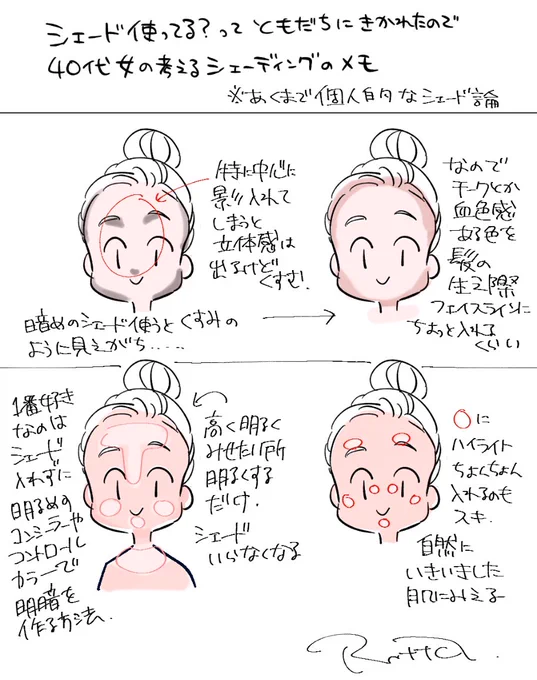 シェード使ってる?って ともだちに きかれたので
40代女の考えるシェーディングのメモ
※あくまで個人的なシェード論
特に中心に
影入れて
しまうと
立体感は
出るけど
くすむ!
暗めのシェード使うとくすみの
ように見えがち.....
なので
チークとか
血色感
ある色を
髪の
生え際
フェイスラインに
ちょっと入れる
くらい
1番好き
なのは
シェード
入れずに
明るめの
コンシーラーや
コントロール
カラーで
明暗を
作る方法.
高く明るく
みせたい所
明るくする
だけ.
シェード
いらなくなる
○に
ハイライト
ちょんちょん
入れるのも
スキ.
自然に
いきいきした
肌にみえる